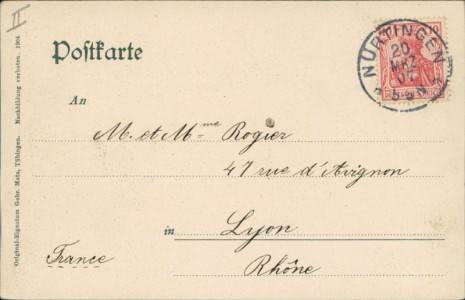 II
Postkarte
NÜRTINGEN
20
MRZ
07
5-6N
An
M. et Mme Rogier
47 rue d'Avignon
in Lyon
France
Rhône
Original-Eigentum Gebr. Metz, Tübingen. Nachbildung verboten. 1904